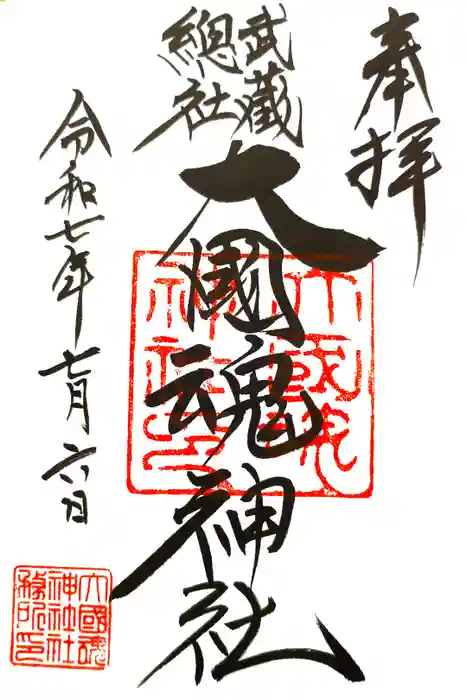 奉拝
武蔵
総社
大國魂神社
令和七年七月六日
大國魂
神社社
務所印